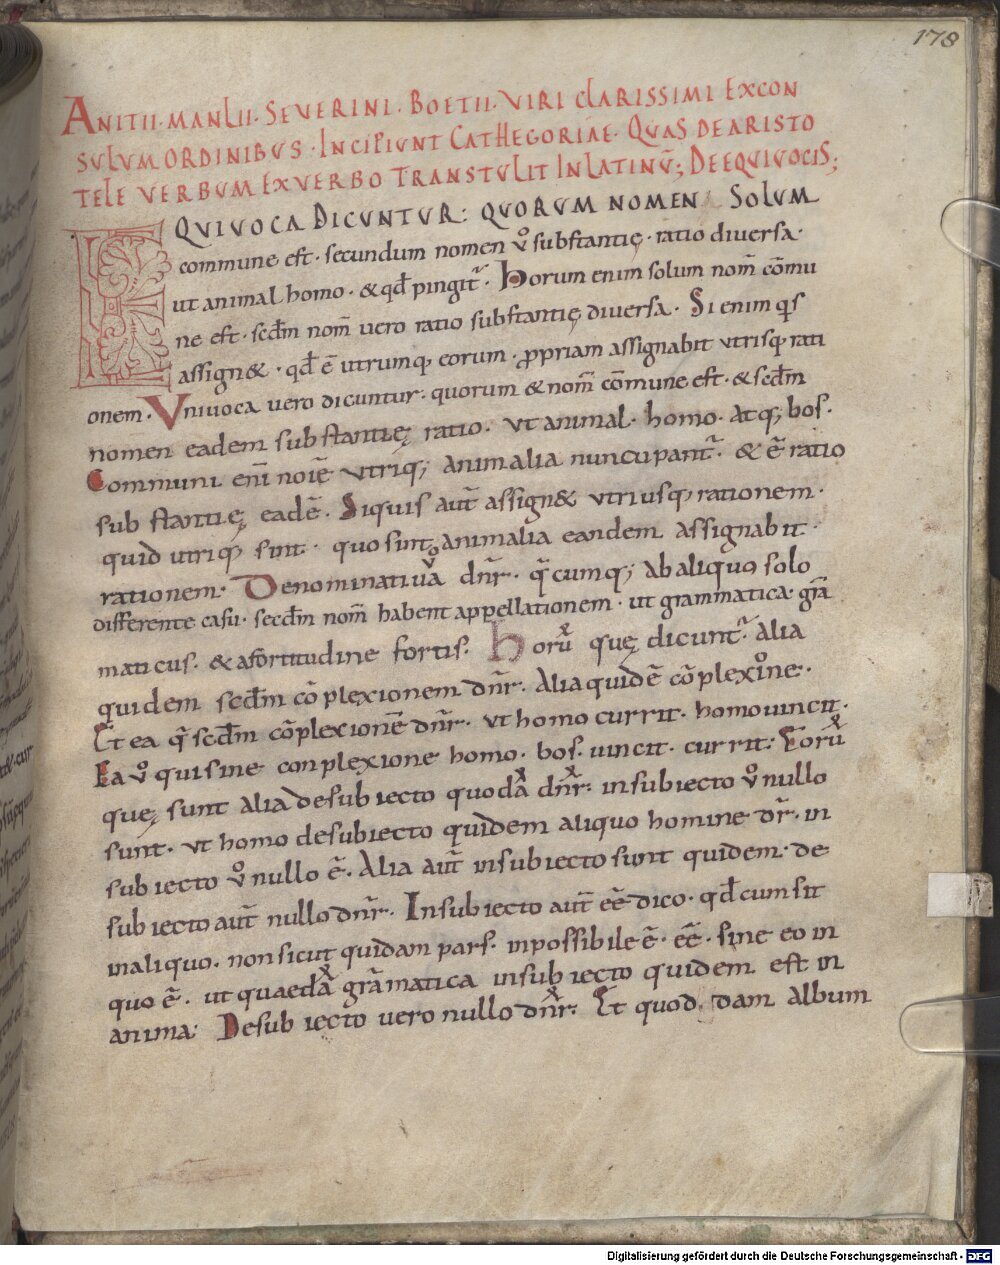 178
ANITII·MANLII·SEVERINI·BOETII·VIRI CLARISSIMI EXCON
SULUM ORDINIBUS·INCIPIUNT CATHEGORIAE·QUAS DE ARISTO
TELE VERBUM EX VERBO TRANSTULIT IN LATINŪ; DE EQUIVOCIS;
EQUIVOCA DICUNTUR: QUORUM NOMEN SOLUM
commune est· secundum nomen v̊ substantię· ratio diversa·
ut animal homo· & qđ pingit᷑· Horum enim solum nom̄ cōmu
ne est· secđm nom̄ vero ratio substantię diversa· Si enim q̇s
assign&· qđ ē utrumq; eorum· ꝓpriam assignabit utrisq; rati
onem· Univoca vero dicuntur· quorum & nom̄ cōmune est· & secđm
nomen eadem substantię ratio· ut animal· homo· atq; bos·
Communi eni noīe utriq; animalia nuncupant᷑· & ē ratio
substantię eadē· Siquis aut̄ assign& utriusq; rationem·
quid utriq; sint· quo sint animalia eandem assignabit·
rationem· Denominativa dn̄r· q̄cumq; ab aliquo solo
differente casu· secđm nom̄ habent appellationem· ut grammatica· grā
maticus· & a fortitudine fortis· Horū quę dicunt᷑· alia
quidem secđm cōplexionem dn̄r· Alia quidē cōplexione·
Et ea q̄ secđm cōplexionē dn̄r· ut homo currit· homo vincit·
Ea v̊ qui sine conplexione homo· bos· vincit· currit: Eorū
quę sunt alia de subiecto quodā dn̄r· in subiecto v̊ nullo
sunt· ut homo de subiecto quidem aliquo homine dr̄· in
subiecto v̊ nullo ē· Alia aut̄ in subiecto sunt quidem· de
subiecto aut̄ nullo dn̄r· In subiecto aut̄ eē dico· qđ cum sit
in aliquo· non sicut quidam pars· inpossibile ē· eē· sine eo in
quo ē· ut quaedā grāmatica in subiecto quidem est in
anima: De subiecto vero nullo dn̄r: Et quoddam album
Digitalisierung gefördert durch die Deutsche Forschungsgemeinschaft - DFG